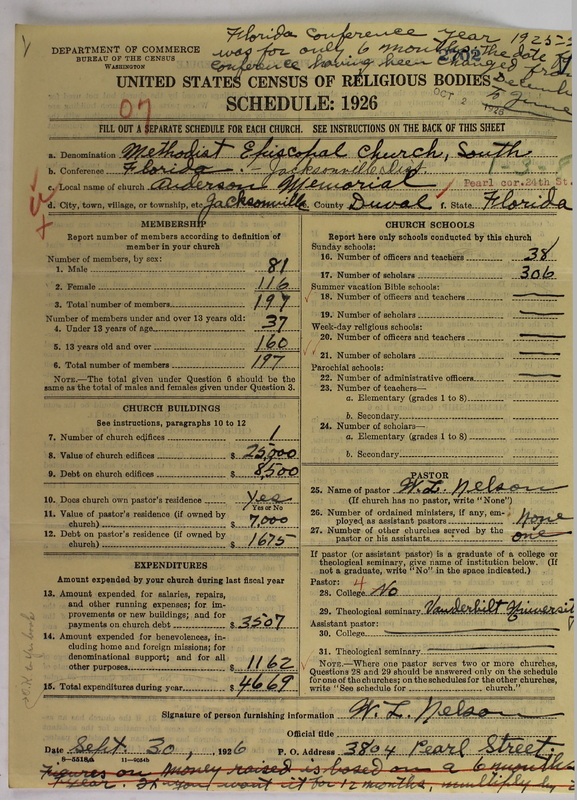 Florida Conference year 1925-
was for only 6 months. The date of
Conference having been changed from
December
to June
2802
OCT 2 1926
DEPARTMENT OF COMMERCE
BUREAU OF THE CENSUS
WASHINGTON
UNITED STATES CENSUS OF RELIGIOUS BODIES
SCHEDULE: 1926
07
FILL OUT A SEPARATE SCHEDULE FOR EACH CHURCH. SEE INSTRUCTIONS ON THE BACK OF THIS SHEET
a. Denomination Methodist Episcopal Church, South
b. Conference Florida - Jacksonville Dist.
c. Local name of church Anderson Memorial Pearl cor. 24th St.
d. City, town, village, or township, etc Jacksonville County Duval f. State Florida
MEMBERSHIP
Report number of members according to definition of
member in your church
Number of members, by sex:
1. Male 81
2. Female 116
3. Total number of members 197
Number of members under and over 13 years old:
4. Under 13 years of age 37
5. 13 years old and over 160
6. Total number of members 197
NOTE.—The total given under Question 6 should be the
same as the total of males and females given under Question 3.
CHURCH BUILDINGS
See instructions, paragraphs 10 to 12
7. Number of church edifices 1
8. Value of church edifices $ 25,000
9. Debt on church edifices $ 8,500
10. Does church own pastor's residence Yes
Yes or No
11. Value of pastor's residence (if owned by
church) $ 7,000
12. Debt on pastor's residence (if owned by
church) $ 1675
EXPENDITURES
Amount expended by your church during last fiscal year
13. Amount expended for salaries, repairs,
and other running expenses; for im-
provements or new buildings; and for
payments on church debt $ 3507
14. Amount expended for benevolences, in-
cluding home and foreign missions; for
denominational support; and for all
other purposes $ 1162
15. Total expenditures during year $ 4669
CHURCH SCHOOLS
Report here only schools conducted by this church
Sunday schools:
16. Number of officers and teachers 38
17. Number of scholars 306
Summer vacation Bible schools:
18. Number of officers and teachers
19. Number of scholars
Week-day religious schools:
20. Number of officers and teachers
21. Number of scholars
Parochial schools:
22. Number of administrative officers
23. Number of teachers—
a. Elementary (grades 1 to 8)
b. Secondary
24. Number of scholars—
a. Elementary (grades 1 to 8)
b. Secondary
PASTOR
25. Name of pastor W. L. Nelson
(If church has no pastor, write "None")
26. Number of ordained ministers, if any, em-
ployed as assistant pastors None
27. Number of other churches served by the
pastor or his assistants one
If pastor (or assistant pastor) is a graduate of a college or
theological seminary, give name of institution below. (If
not a graduate, write "No" in the space indicated.)
Pastor: 4
28. College No
29. Theological seminary Vanderbilt Universit
Assistant pastor:
30. College
31. Theological seminary
NOTE.—Where one pastor serves two or more churches,
Questions 28 and 29 should be answered only on the schedule
for one of the churches; on the schedules for the other churches,
write "See schedule for church."
Signature of person furnishing information W. L. Nelson
Official title
Date Sept. 30, 1926 P. O. Address 3804 Pearl Street.
8—5518a 11—9054b
Figures on money raised is based on a 6 months
year. If you want it for 12 months, multiply by 2